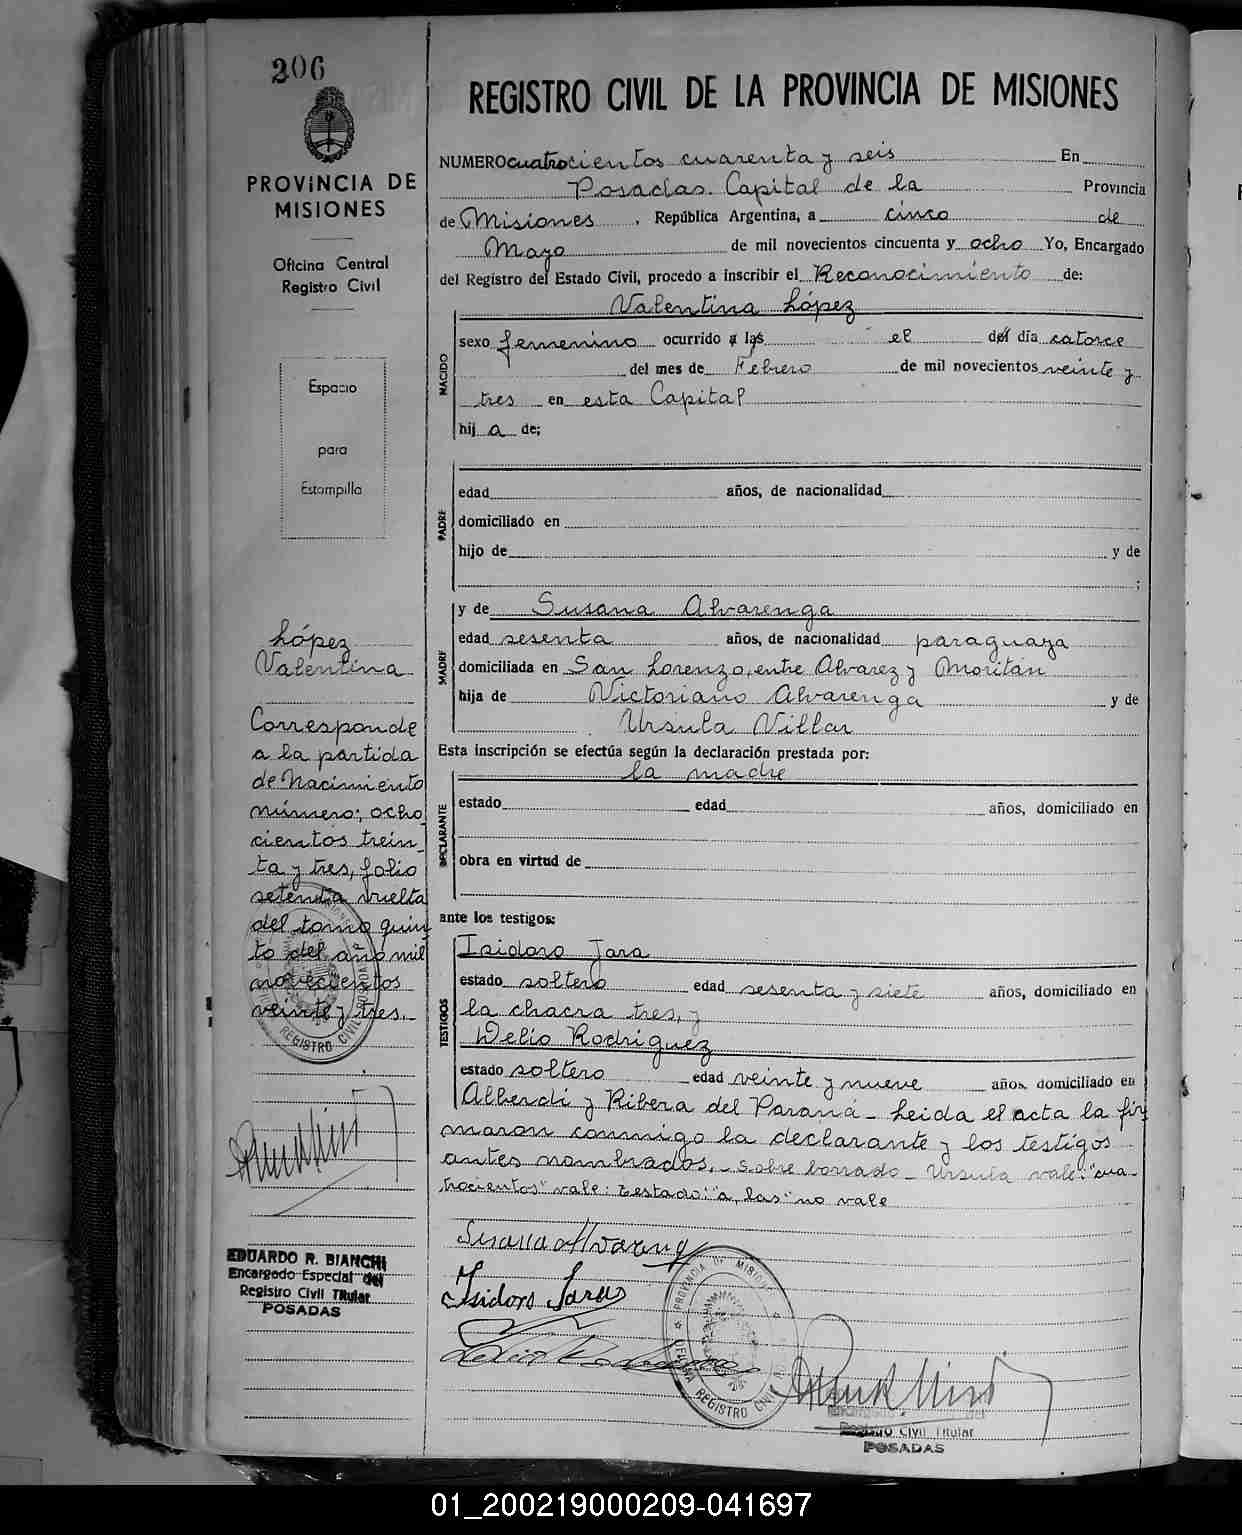 206
PROVINCIA DE
MISIONES
Oficina Central
Registro Civil
Espacio
para
Estampilla
López
Valentina
Corresponde
a la partida
de Nacimiento
número; ocho
cientos trein_
ta y tres, folio
setenta vuelta
del tomo quin_
to del año mil
novecientos
veinte y tres._
REGISTRO CIVIL
EDUARDO R. BIANCHI
Encargado Especial del
Registro Civil Titular
POSADAS
REGISTRO CIVIL DE LA PROVINCIA DE MISIONES
NUMERO cuatrocientos cuarenta y seis En
Posadas. Capital de la Provincia
de Misiones, República Argentina, a cinco de
Mayo de mil novecientos cincuenta y ocho Yo, Encargado
del Registro del Estado Civil, procedo a inscribir el Reconocimiento de:
Valentina López
NACIDO
sexo femenino ocurrido a las el del día catorce
del mes de Febrero de mil novecientos veinte y
tres en esta Capital
hij a de;
PADRE
edad años, de nacionalidad
domiciliado en
hijo de y de
;
MADRE
y de Susana Alvarenga
edad sesenta años, de nacionalidad paraguaya
domiciliada en San Lorenzo, entre Alvarez y Moritán
hija de Victoriano Alvarenga y de
Ursula Villar
Esta inscripción se efectúa según la declaración prestada por:
la madre
DECLARANTE
estado edad años, domiciliado en
obra en virtud de
ante los testigos:
TESTIGOS
Isidoro Jara
estado soltero edad sesenta y siete años, domiciliado en
la chacra tres, y
Delio Rodriguez
estado soltero edad veinte y nueve años, domiciliado en
Alberdi y Ribera del Paraná _ Leida el acta la fir
maron conmigo la declarante y los testigos
antes nombrados. _ Sobre borrado _ Ursula vale: "cua-
trocientos" vale: Testado: "a, las" no vale
Susana Alvareng
Isidoro Jara
PROVINCIA DE MISIONES
REGISTRO CIVIL
Registro Civil Titular
POSADAS
01_200219000209-041697